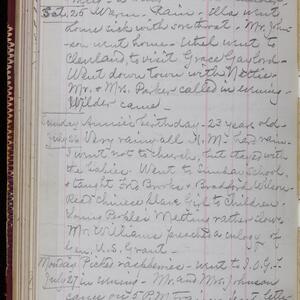 Sat. 25 Warm - Rain - Ella went
home sick with sore throat - Mr. John-
son went home - Ethel went to
Cleveland, to visit Grace Gaylord -
Went down town with Nettie -
Mr. & Mrs. Parker called in evening -
Wilder came -
Sunday Annie's birthday - 23 years old -
July 26 Very rainy all A.M. hard rain.
I went not to church, but stayed with
the babies. Went to Sunday School,
& taught Brooks & Bradford
Read Chinese Slave Girl to Children.
Meeting rather slow.
Mr. Williams present a eulogy of
Gen. U.S. Grant -
Monday Picked raspberries - Went to I.O.G.T.
July 27 in evening - Mr. and Mrs. Johnson
came on 5 P.M.